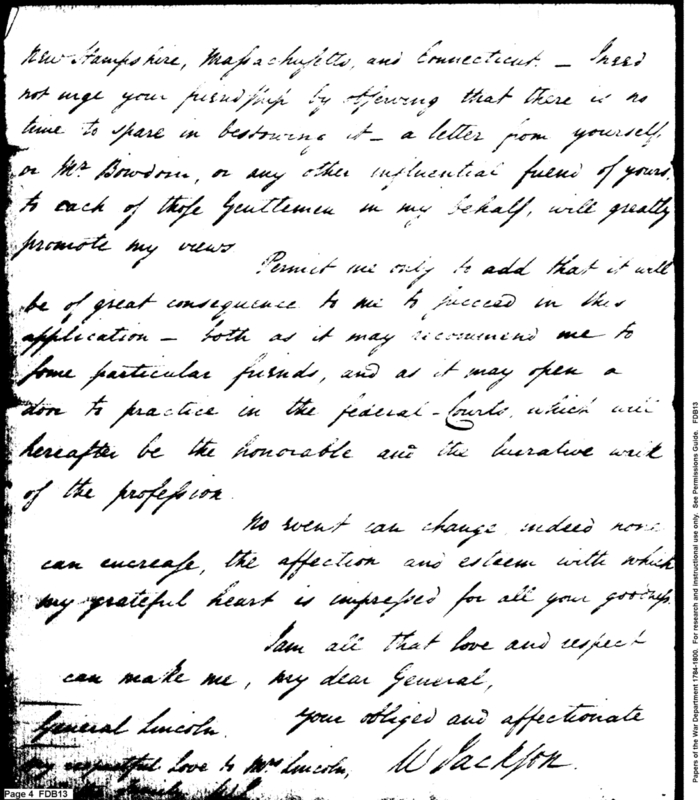 New Hampshire, Massachusetts, and Connecticut. — I need
not urge your friendship by observing that there is no
time to spare in bestowing it — a letter from yourself,
or Mr. Bowdoin, or any other influential friend of yours,
to each of those Gentlemen in my behalf, will greatly
promote my views
Permit me only to add that it will
be of great consequence to me to succeed in this
application — both as it may recommend me to
some particular friends, and as it may open a
door to practice in the federal-Courts, which will
hereafter be the honorable and the lucrative walk
of the profession.
No event can change, indeed none
can encrease, the affection and esteem with which
my grateful heart is impressed for all your goodness.
I am all that love and respect
can make me, my dear General,
your obliged and affectionate
General Lincoln.
W Jackson.
my respectful Love to Mrs Lincoln,
Page 4 FDB13
Papers of the War Department 1784-1800. For research and instructional use only. See Permissions Guide. FDB13